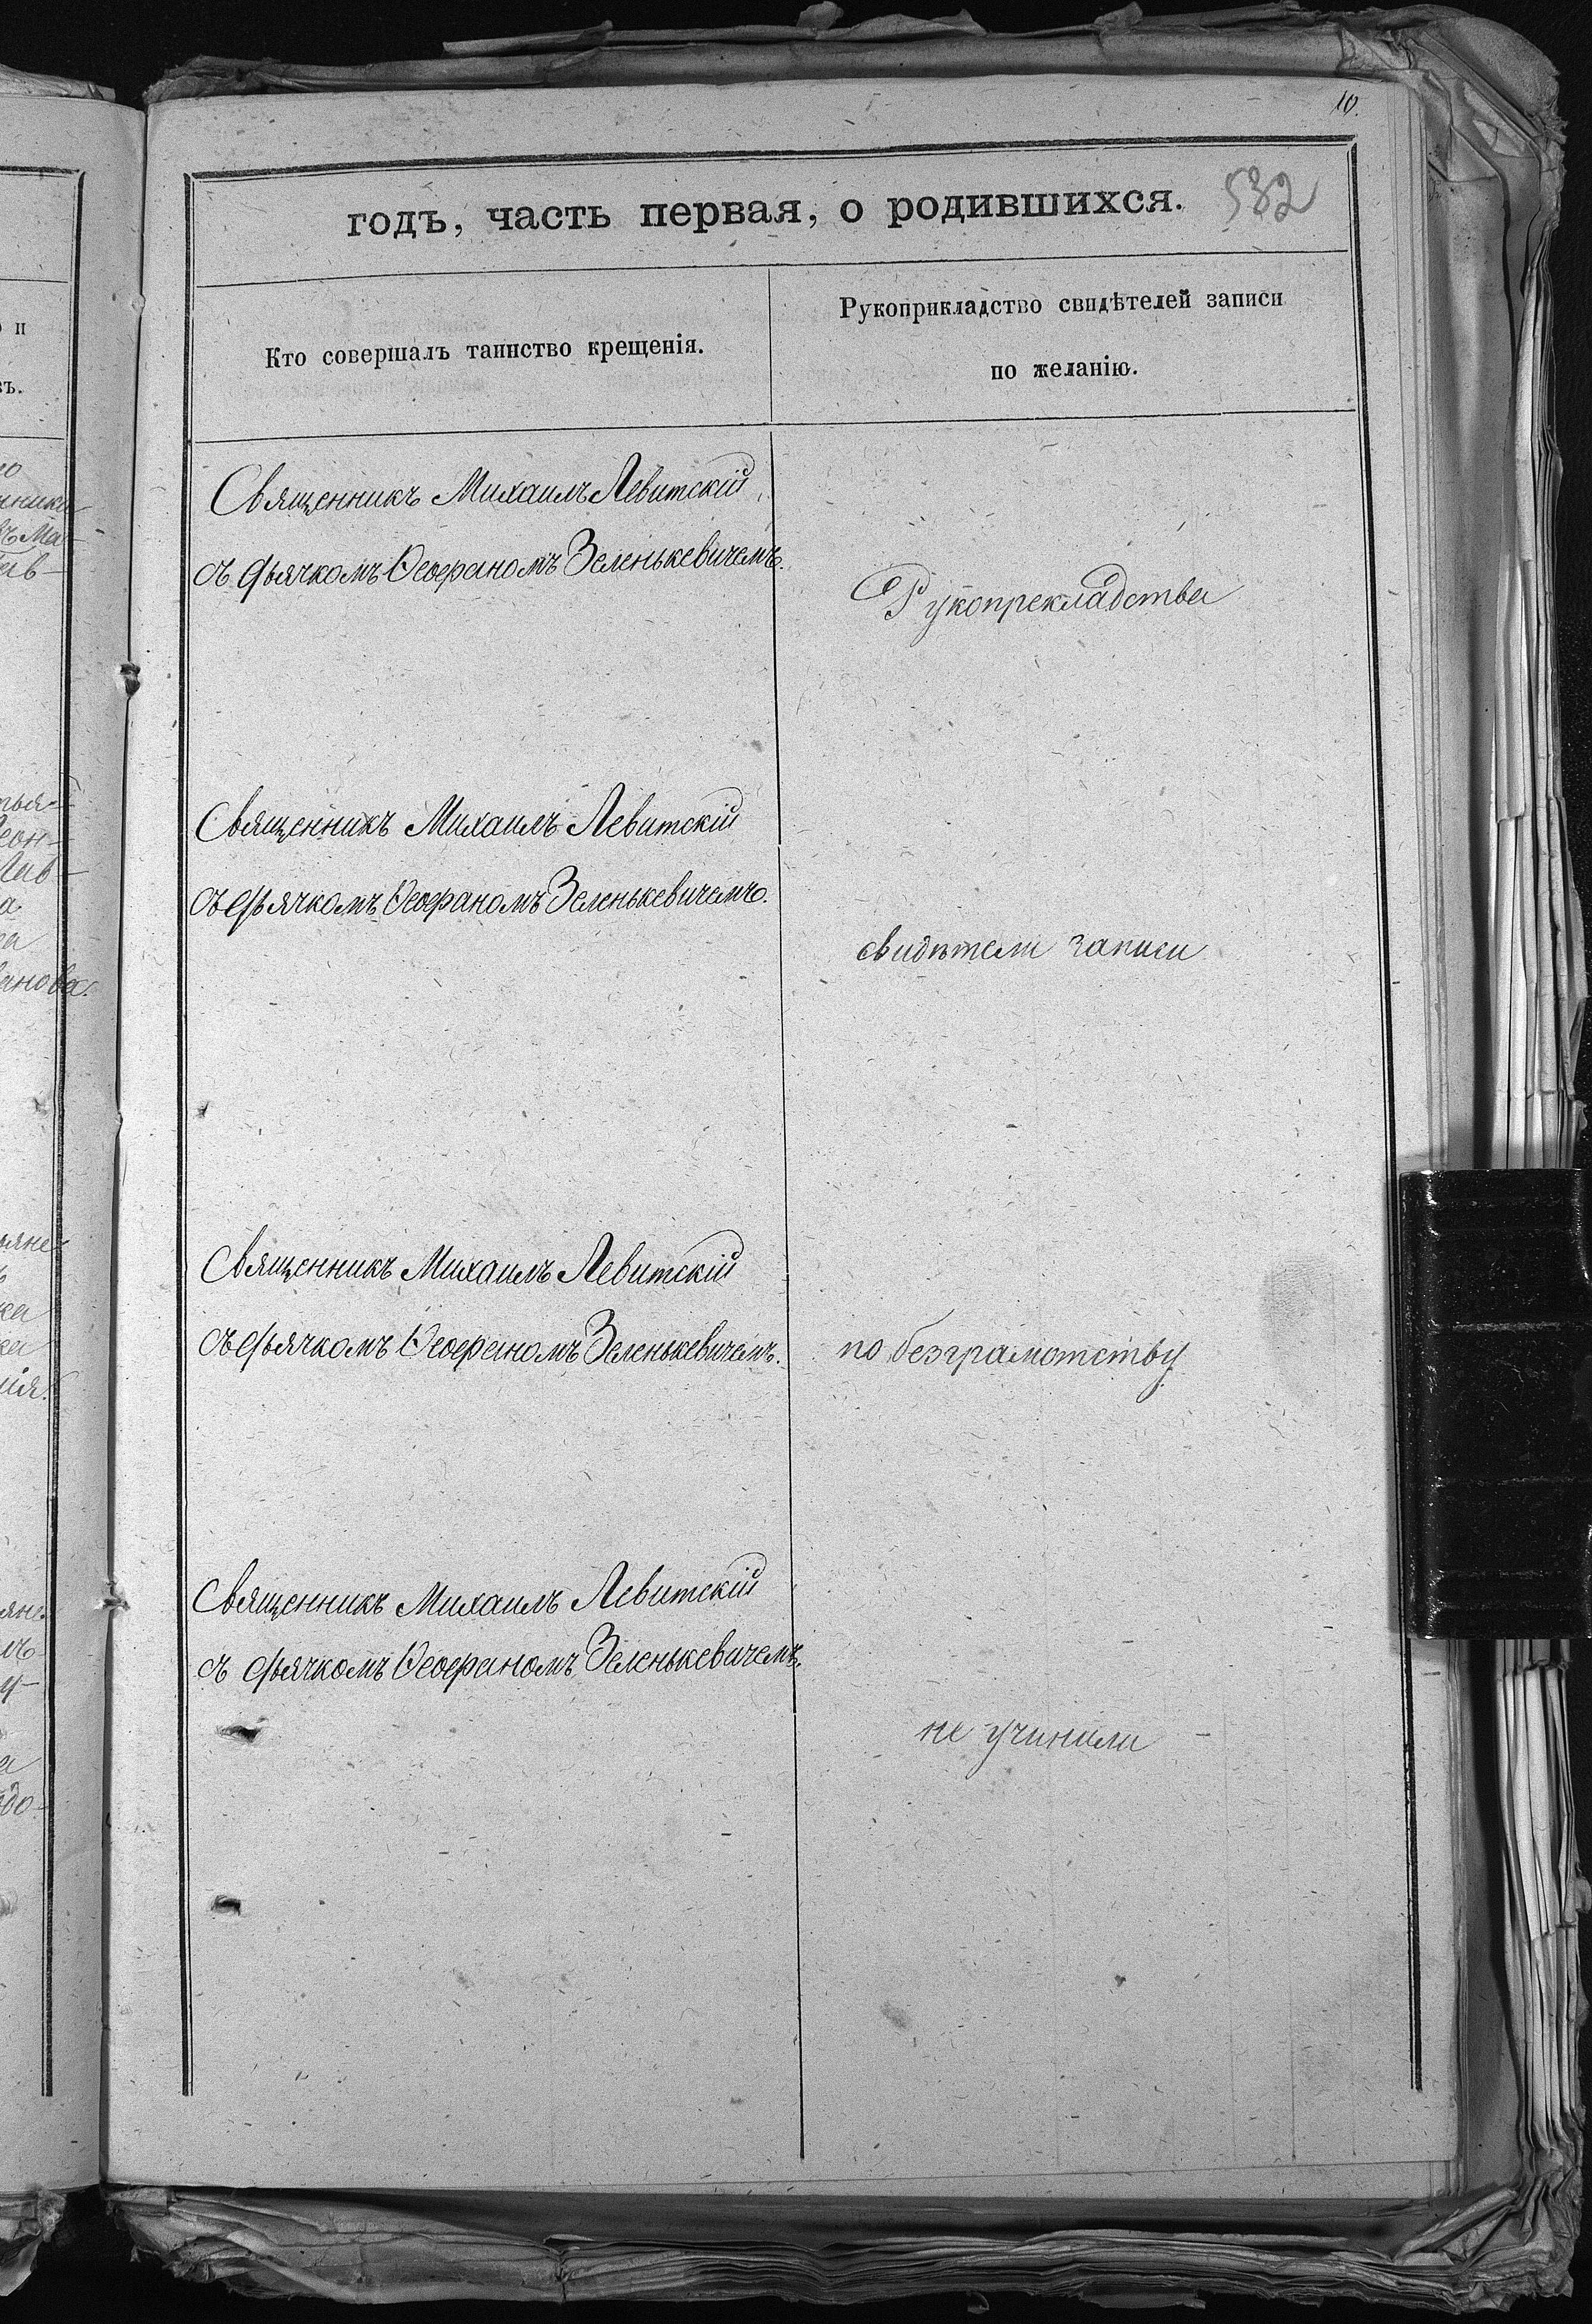 10.
годъ, часть первая, о родившихся. 532
Кто совершалъ таинство крещенія.
Рукоприкладство свидѣтелей записи
по желанію.
Священникъ Михаилъ Левитскій
съ дьячкомъ Ѳеофаномъ Зеленькевичемъ.
Рукопрекладства
Священникъ Михаилъ Левитскій
съ дьячкомъ Ѳеофаномъ Зеленькевичемъ.
свидѣтели записи
Священникъ Михаилъ Левитскій
съ дьячкомъ Ѳеофаномъ Зеленькевичемъ.
по безграмотству
Священникъ Михаилъ Левитскій
съ дьячкомъ Ѳеофаномъ Зеленькевичемъ.
не учинили -